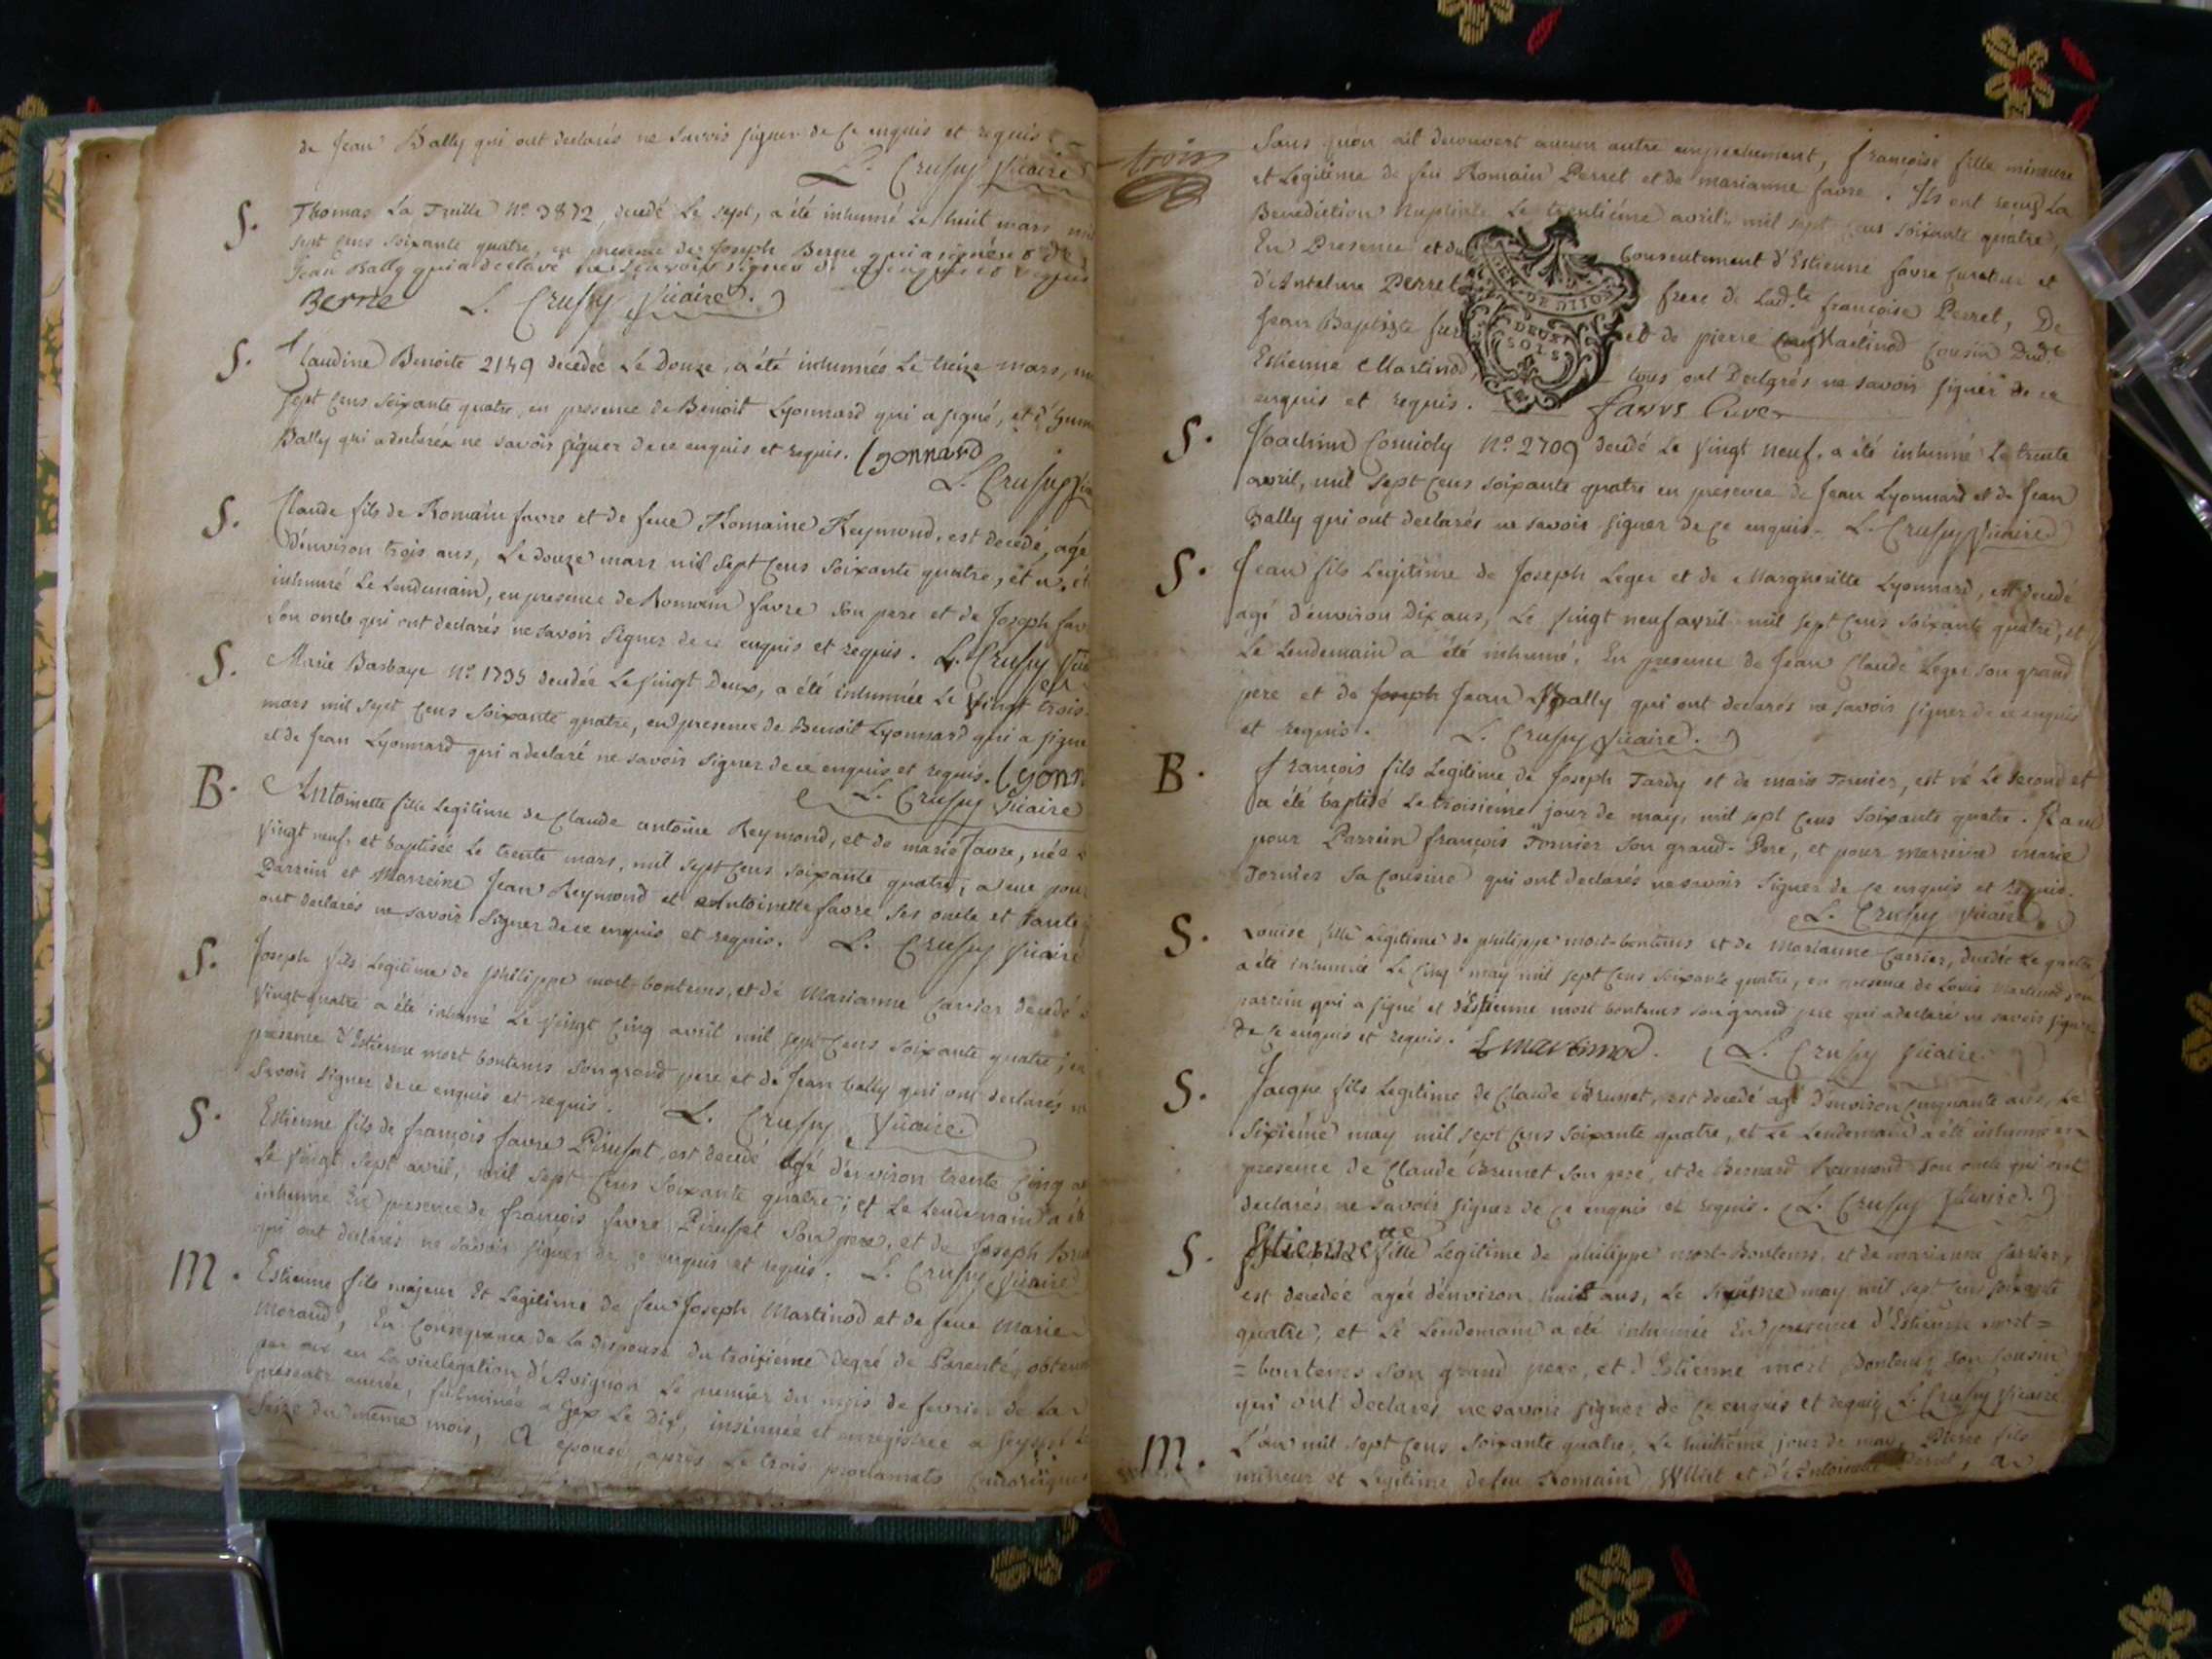 de Jean Bally qui ont declarés ne savoir signer de ce enquis et requis
L. Crussy Vicaire
S. Thomas La Treille No 3872, decedé Le sept, a été inhumé Le huit mars mil
sept cens soixante quatre, en presence de Joseph Bernie qui a signé et de
Jean Bally qui a declaré ne sçavoir signer de ce enquis et requis
Bernie L. Crussy Vicaire.
S. Claudine Benoite 2149 décédée Le Douze, a été inhumées Le treize mars, mil
sept cens soixante quatre, en presence de Benoit Lyonnard qui a signé, et d'
Bally qui a declaré ne savoir signer de ce enquis et requis. Lyonnard
L. Crussy
S. Claude fils de Romain favre et de feue Romaine Reymond, est decédé, agé
d'environ trois ans, Le douze mars mil sept cens soixante quatre, et a été
inhumé Le Lendemain, en presence de Romain favre son pere et de Joseph fav
son oncle qui ont declarés ne savoir signer de ce enquis et requis. L. Crussy Vic
S. Marie Barbaye No 1735 decedée Le vingt Deux, a été inhumée Le vingt trois
mars mil sept cens soixante quatre, en presence de Benoit Lyonnard qui a signé
et de Jean Lyonnard qui a declaré ne savoir signer de ce enquis et requis. Lyonn
L. Crussy Vicaire
B. Antoinette fille Legitime de Claude antoine Reymond, et de marie favre, née
vingt neuf, et baptisée Le trente mars, mil sept cens soixante quatre, a eue pour
Parrein et Marreine Jean Reymond et Antoinette favre ses oncle et tante
ont declarés ne savoir signer de ce enquis et requis. L. Crussy Vicaire
S. Joseph fils Legitime de philippe mort-bontems, et de Marianne Carrier decedé
vingt-quatre a été inhumé Le vingt cinq avril mil sept cens soixante quatre; en
presence d'Estienne mort bontems son grand pere et de Jean bally qui ont declarés
savoir signer de ce enquis et requis. L. Crussy Vicaire
S. Estienne fils de françois favre Pirusset, est decedé agé d'environ trente cinq
Le vingt sept avril, mil sept cens soixante quatre; et Le Lendemain a été
inhumé En presence de françois favre Pirusset Son pere, et de Joseph
qui ont declarés ne savoir signer de ce enquis et requis. L. Crussy Vicaire
M. Estienne fils majeur Et Legitime de feu Joseph Martinod et de feue Marie
Moraud, En consequence de La dispense du troisiéme degré de Parenté, obtenue
par eux en La vicelegation d'Avignon Le premier du mois de fevrier de La
presente année, fulminée a Gex Le Dix, insinuée et enregistrée a
seize du même mois, a epousé, après Le trois proclamats
trois
Sans quon ait decouvert aucun autre empechement, françoise fille mineure
et Légitime de feu Romain Perret et de marianne favre. Ils ont reçus La
Benediction Nuptiale Le trentiéme avril mil sept cens soixante quatre,
En Presence et du Consentement d'Estienne favre curateur et
d'Antelme Perret frere de Lad.te françoise Perret, De
Jean Baptiste et de pierre Martinod Cousin Dud.t
Estienne Martinod, tous ont Declarés ne savoir signer de ce
enquis et requis. favre Curé
GEN. DE DIJON
DEUX
SOLS
S. Joachim Comioly No. 2709 decedé Le vingt neuf, a été inhumé Le trente
avril, mil sept cens soixante quatre en presence de Jean Lyonnard et de Jean
Bally qui ont declarés ne savoir signer de ce enquis. L. Crussy Vicaire
S. Jean fils Legitime de Joseph Leger et de Margueritte Lyonnard, est decedé
agé d'environ Dix ans, Le vingt neuf avril mil sept cens soixante quatre, et
Le Lendemain a été inhumé. En presence de Jean Claude Leger son grand
pere et de Joseph Jean Bally qui ont declarés ne savoir signer de ce enquis
et requis. L. Crussy Vicaire.
B. François fils Legitime de Joseph Tardy et de marie Tornier, est né Le second et
a été baptisé Le troisiéme jour de may, mil sept cens soixante quatre. Il a eu
pour Parrein françois Tornier Son grand-Pere, et pour marreine marie
Tornier sa Cousine qui ont declarés ne savoir signer de ce enquis et requis.
L. Crussy Vicaire.
S. Louise fille Legitime de philippe mort-bontems et de Marianne Carrier, decedée Le quatre
a été inhumée Le cinq may mil sept cens soixante quatre, en presence de Louis Martinod son
parrein qui a signé et d'Estienne mort bontems son grand pere qui a declaré ne savoir signer
de ce enquis et requis. L martinod. L. Crussy Vicaire
S. Jacque fils Legitime de Claude Brunet, est decedé agé d'environ cinquante ans, Le
sixiéme may mil sept cens soixante quatre, et Le Lendemain a été inhumé en
presence de Claude Brunet son pere, et de Bernard Reymond son oncle qui ont
declarés ne savoir signer de ce enquis et requis. L. Crussy Vicaire.
S. Estiennette fille Legitime de philippe mort-Bontems, et de marianne Carrier,
est decedée agée d'environ huit ans, Le sixiéme may mil sept cens soixante
quatre, et Le Lendemain a été inhumée En presence d'Estienne mort=
=bontems son grand pere, et d'Estienne mort Bontems son Cousin
qui ont declarés ne savoir signer de ce enquis et requis L. Crussy Vicaire
M. L'an mil sept cens soixante quatre, Le huitiéme jour de may, Pierre fils
mineur et Legitime de feu Romain et d'Antoinette Perret, a